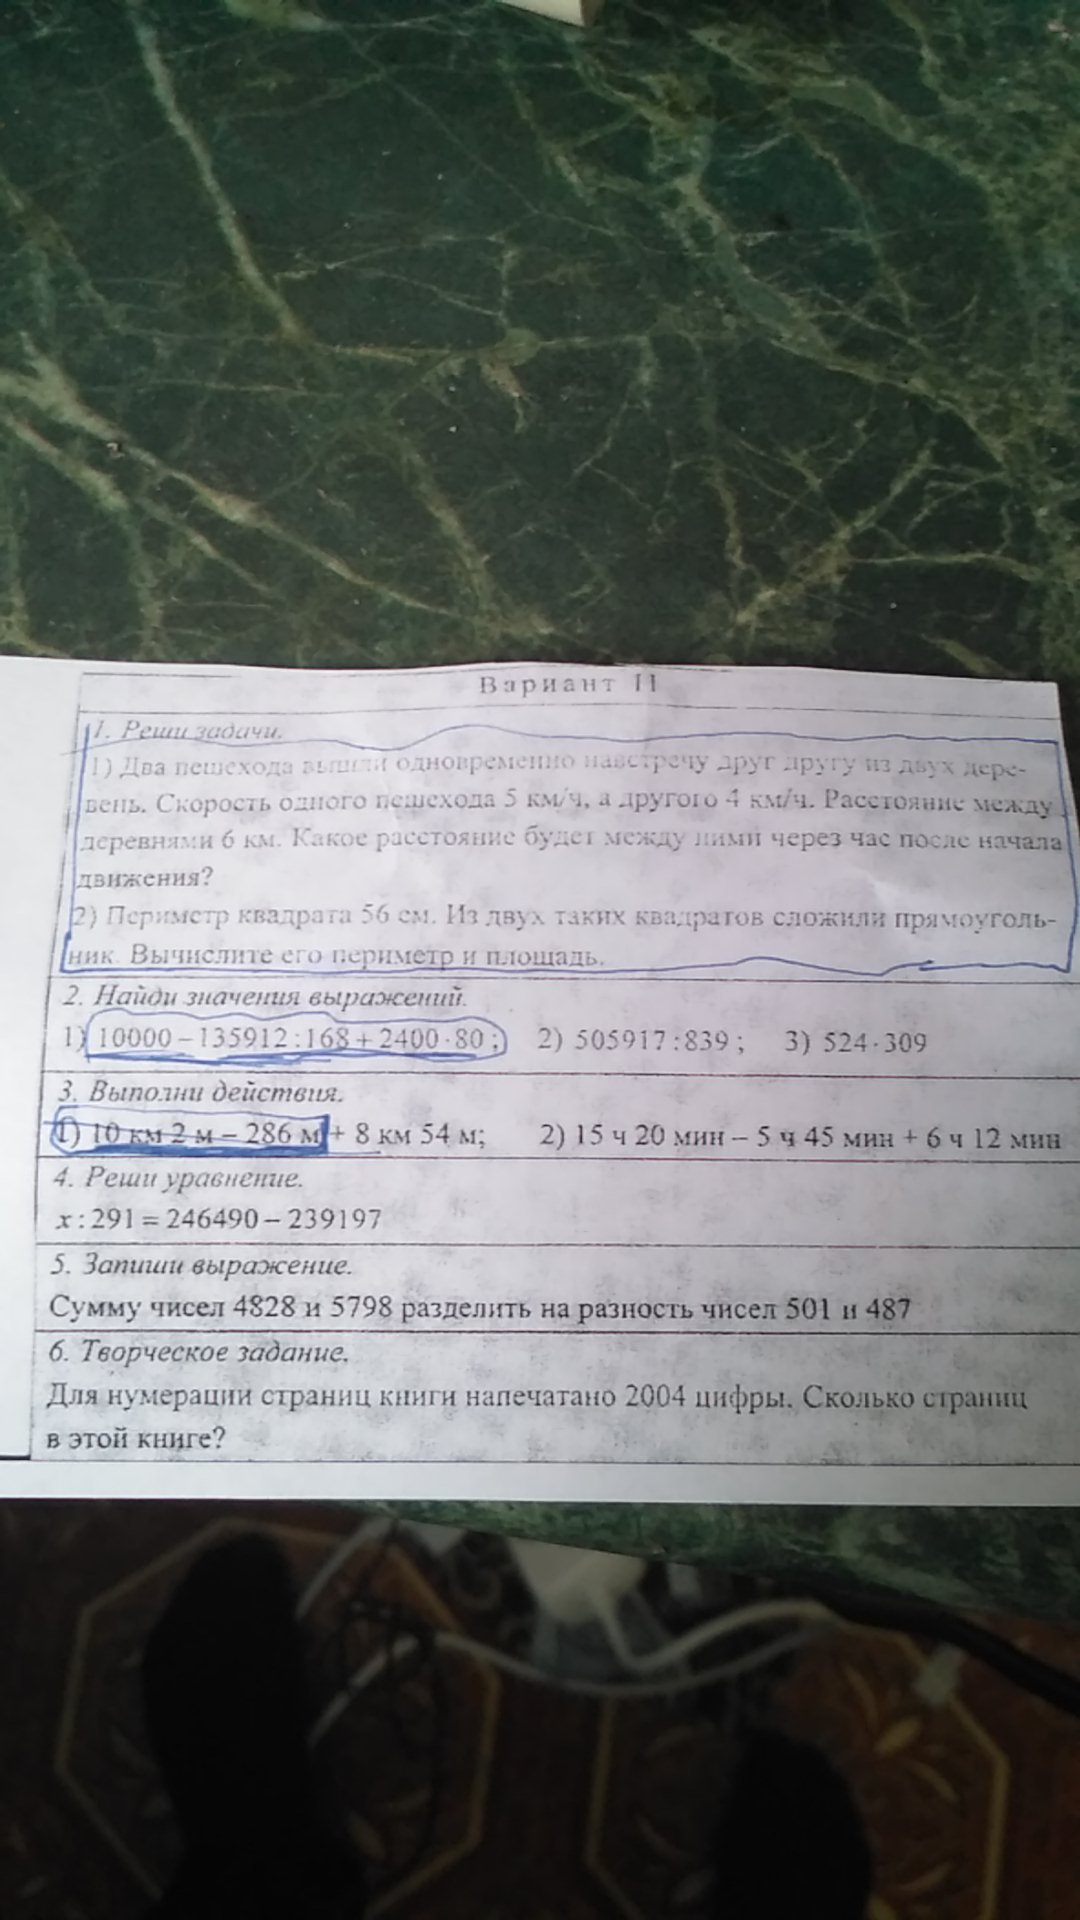 Вариант II
1. Реши задачи.
1) Два пешехода вышли одновременно навстречу друг другу из двух дере-
вень. Скорость одного пешехода 5 км/ч, а другого 4 км/ч. Расстояние между
деревнями 6 км. Какое расстояние будет между ними через час после начала
движения?
2) Периметр квадрата 56 см. Из двух таких квадратов сложили прямоуголь-
ник. Вычислите его периметр и площадь.
2. Найди значения выражений.
1) 10000 – 135912 : 168 + 2400 · 80 ; 2) 505917 : 839 ; 3) 524 · 309
3. Выполни действия.
1) 10 км 2 м – 286 м + 8 км 54 м; 2) 15 ч 20 мин – 5 ч 45 мин + 6 ч 12 мин
4. Реши уравнение.
x : 291 = 246490 – 239197
5. Запиши выражение.
Сумму чисел 4828 и 5798 разделить на разность чисел 501 и 487
6. Творческое задание.
Для нумерации страниц книги напечатано 2004 цифры. Сколько страниц
в этой книге?